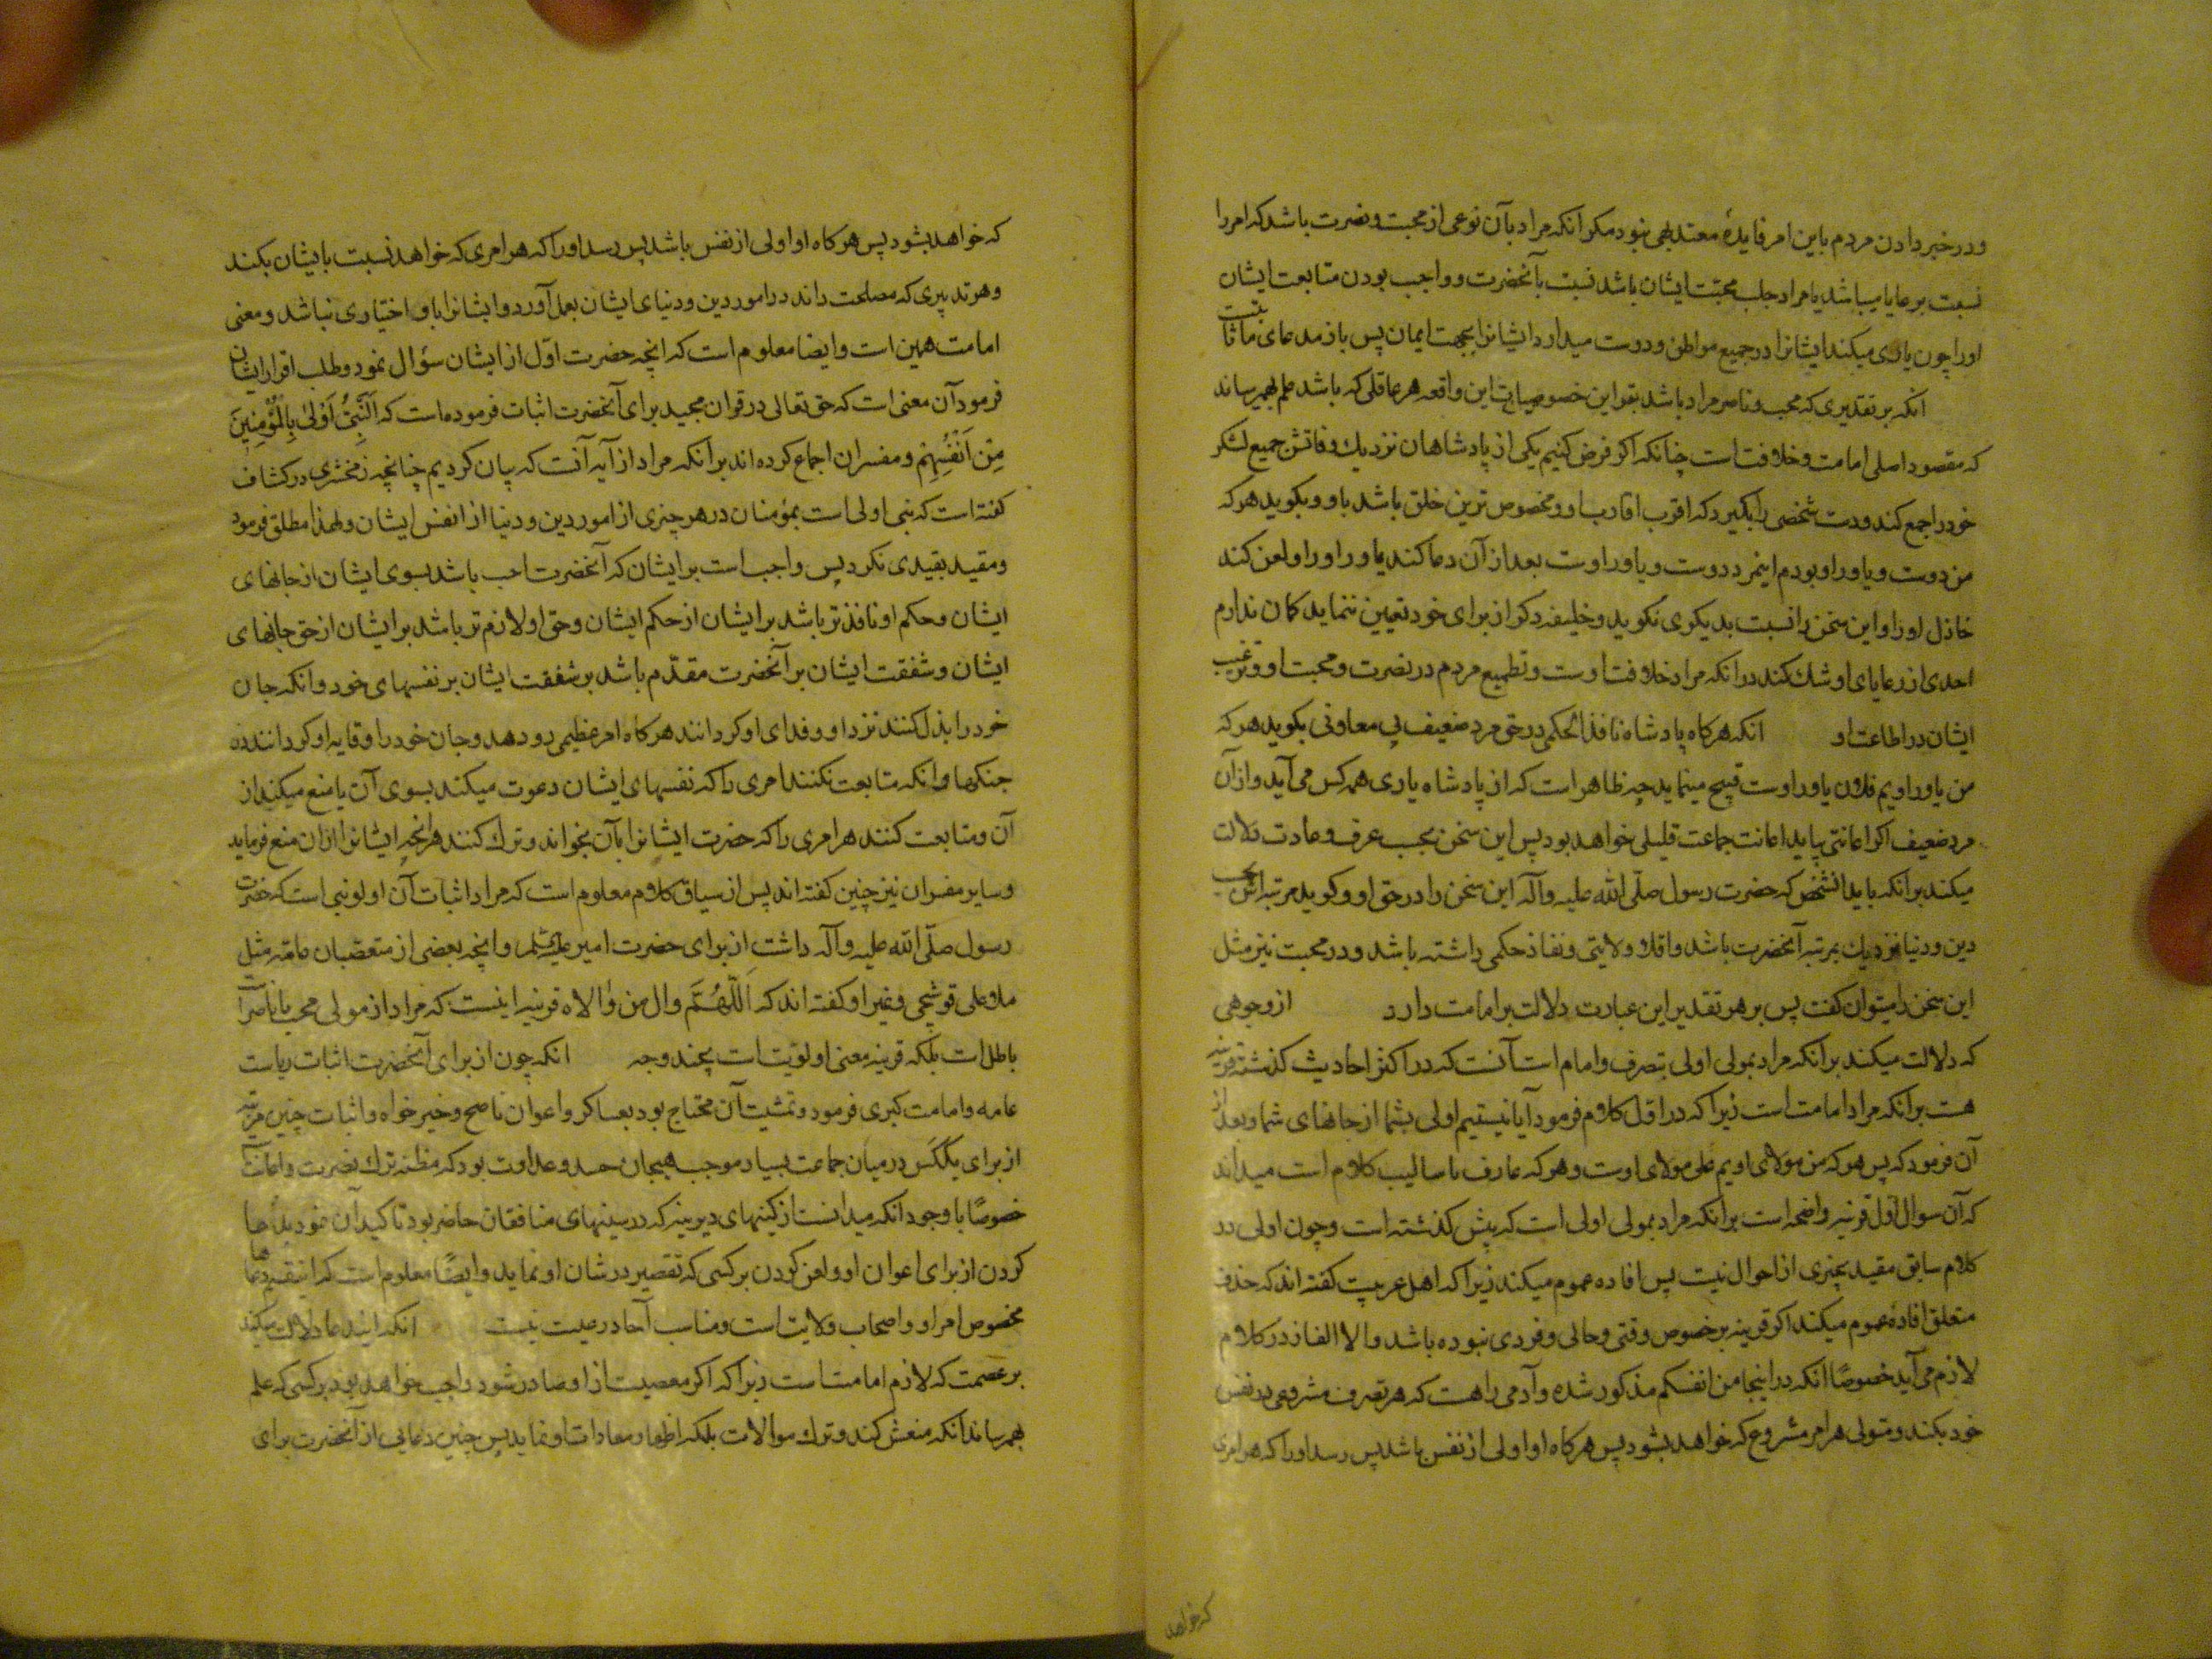 ودر خبر دادن مردم باین امر فایدهٔ معتد بهی نبود مکر انکه مراد بآن نوعی از محبت ونصرت باشد که امرا
نسبت برعایا میباشد یا مراد جلب محبت ایشان باشد نسبت بآنحضرت وواجب بودن متابعت ایشان
اورا چون یاری میکند ایشانرا در جمیع مواطن ودوست میدارد ایشانرا بجهت ایمان پس باز مدعای ما ثابتست
انکه بر تقدیری که محب وناصر مراد باشد بقراین خصوصیات این واقعه هر عاقلی که باشد علم بهم‌رساند
که مقصود اصلی امامت وخلافت است چنانکه اکر فرض کنیم یکی از پادشاهان نزدیك وفاتش جمیع لشکر
خود را جمع کند ودست شخصی را بکیرد که اقرب اقارب او ومخصوص ترین خلق باشد باو وبکوید هر که
من دوست ویاور او بودم اینمرد دوست ویاور اوست بعد از آن دعا کند یاور اورا ولعن کند
خاذل اورا واین سخن را نسبت بدیکری نکوید وخلیفه دکر از برای خود تعیین ننماید کمان ندارم
احدی از رعایای او شك کند در انکه مراد خلافت اوست وتطمیع مردم در نصرت ومحبت او وترغیب
ایشان در اطاعت او انکه هرکاه پادشاه نافذ الحکمی در حق مرد ضعیف بی معاونی بکوید هر که
من یاور اویم فلان یاور اوست قبیح مینماید چه ظاهر است که از پادشاه یاری همه کس می آید واز آن
مرد ضعیف اکر اعانتی بیاید اعانت جماعت قلیلی خواهد بود پس این سخن بحسب عرف وعادت دلالت
میکند برانکه باید انشخص که حضرت رسول صلّی الله علیه وآله این سخن را در حق او وکوید مرتبه اش بحسب
دین ودنیا نزدیك بمرتبه آنحضرت باشد واقلا ولایتی ونفاذ حکمی داشته باشد ودر محبت نیز مثل
این سخن را میتوان کفت پس بر هر تقدیر این عبارت دلالت بر امامت دارد از وجوهی
که دلالت میکند برانکه مراد بمولی اولی بتصرف وامام است آنست که در اکثر احادیث کذشته قرینه
هست برانکه مراد امامت است زیرا که در اول کلام فرمود آیا نیستیم اولی بشما از جانهای شما وبعد از
آن فرمود که پس هر که من مولای اویم علی مولای اوست وهر که عارف باسالیب کلام است میداند
که آن سوال اول قرینه واضحه است برانکه مراد بمولی اولی است که پیش کذشته است وچون اولی در
کلام سابق مقید بچیزی از احوال نیست پس افاده عموم میکند زیرا که اهل عربیت کفته اند که حذف
متعلق افادهٔ عموم میکند اکر قرینه بر خصوص وقتی وحالی وفردی نبوده باشد والا الغاز در کلام
لازم می آید خصوصًا انکه در اینجا من انفسکم مذکور شده وآدمی را هست که هر تصرف مشروعی در نفس
خود بکند ومتولی هر امر مشروع که خواهد بشود پس هرکاه او اولی از نفس باشد پس رسد اورا که هر امری
که خواهد
که خواهد بشود پس هرکاه او اولی از نفس باشد پس رسد اورا که هر امری که خواهد نسبت بایشان بکند
وهر تدبیری که مصلحت داند در امور دین ودنیای ایشان بعمل آورد وایشانرا با او اختیاری نباشد ومعنی
امامت همین است وایضا معلوم است که انچه حضرت اوّل از ایشان سؤال نمود وطلب اقرار ایشان
فرمود آن معنی است که حق تعالی در قران مجید برای آنحضرت اثبات فرموده است که اَلنَّبِیُّ اَوْلیٰ بِالْمُؤْمِنِینَ
مِنْ اَنْفُسِهِمْ ومفسران اجماع کرده اند برانکه مراد از آیه آنست که بیان کردیم چنانچه زمخشری در کشاف
کفته است که نبی اولی است بمؤمنان در هر چیزی از امور دین ودنیا از انفس ایشان ولهذا مطلق فرمود
ومقید بقیدی نکرد پس واجب است بر ایشان که آنحضرت احب باشد بسوی ایشان از جانهای
ایشان وحکم او نافذ تر باشد بر ایشان از حکم ایشان وحق او لازم تر باشد بر ایشان از حق جانهای
ایشان وشفقت ایشان بر آنحضرت مقدّم باشد بر شفقت ایشان بر نفسهای خود وانکه جان
خود را بذل کنند نزد او وفدای او کردانند هرکاه امر عظیمی رو دهد وجان خود را وقایه او کردانند در
جنکها وانکه متابعت نکنند امری را که نفسهای ایشان دعوت میکند بسوی آن یا منع میکند از
آن ومتابعت کنند هر امری را که حضرت ایشانرا بآن بخواند وترك کنند هر انچه ایشانرا از ان منع فرماید
وسایر مفسران نیز چنین کفته اند پس از سیاق کلام معلوم است که مراد اثبات آن اولویتی است که حضرت
رسول صلّی الله علیه وآله داشت از برای حضرت امیر علیه السلام وانچه بعضی از متعصبان عامّه مثل
ملا علی قوشچی وغیر او کفته اند که اَللّٰهُمَّ وال من والاه قرینه اینست که مراد از مولی محب یا ناصر است
باطل است بلکه قرینه معنی اولویّت است بچند وجه انکه چون از برای آنحضرت اثبات ریاست
عامه وامامت کبری فرمود وتمشیت آن محتاج بود بعساکر واعوان ناصح وخیر خواه واثبات چنین مرتبه
از برای یککس در میان جماعت بسیار موجب هیجان حسد وعداوت بود که مظنه ترك نصرت واعانت
خصوصًا با وجود انکه میدانست از کینهای دیرینه که در سینهای منافقان حاضر بود تاکید آن نمود بدعا
کردن از برای اعوان او ولعن کردن بر کسی که تقصیر در شان او نماید وایضًا معلوم است که اینقسم دعاها
مخصوص امرا واصحاب ولایت است ومناسب آحاد رعیت نیست انکه ایندعا دلالت میکند
بر عصمت که لازم امامت است زیرا که اکر معصیت از او صادر شود واجب خواهد بود بر کسی که علم
بهم‌رساند انکه منعش کند وترك موالات بلکه اظهار معادات او نماید پس چنین دعایی از آنحضرت برای